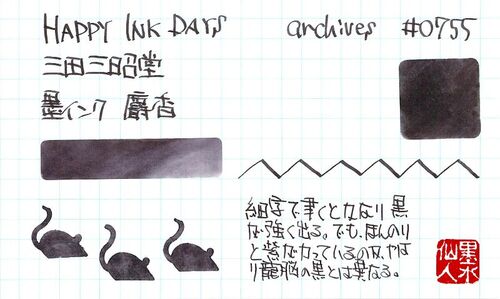 HAPPY INK DAYS archives #0755
三田三昭堂
墨インク 麝香
細字で書くとかなり黒
が強く出る。でも、ほんのり
と紫がかっているのが、やは
り龍脳の黒とは異なる。
墨水
仙人